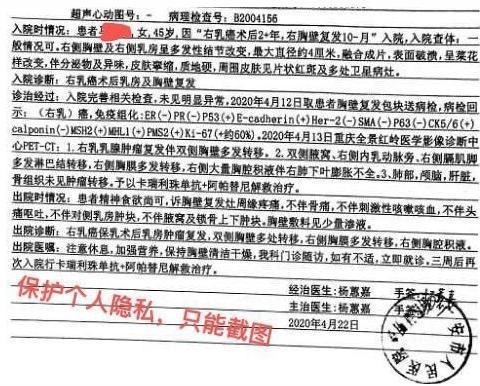 超声心动图号：-    病理检查号：B2004156
入院时情况：患者 女,45岁,因“右乳癌术后2+年,右胸壁复发10-月”入院,入院查体：一
般情况可。右侧胸壁及右侧乳房呈多发性结节改变,最大直径约4厘米,融合成片,表面破溃,呈菜花
样改变,伴分泌物及异味,皮肤挛缩,质地硬,周围皮肤见片状红斑及多处卫星病灶。
入院诊断：右乳癌术后乳房及胸壁复发
诊治经过：入院完善相关检查,未见明显异常,2020年4月12日取患者胸壁复发包块送病检,病检回
示：（右乳）癌,免疫组化:ER(-)PR(-)P53(+)E-cadherin(+)Her-2(-)SMA(-)P63(-)CK5/6(+)
calponin(-)MSH2(+)MHL1(+)PMS2(+)Ki-67(+约60%)。2020年4月13日重庆全景红岭医学影像诊断中
心PET-CT：1.右乳乳腺肿瘤复发伴双侧胸壁多发转移。2.双侧腋窝、右侧内乳动脉旁、右侧膈肌脚
多发淋巴结转移,右侧胸膜多发转移,右侧大量胸腔积液伴右肺下叶膨胀不全。3、肺部,颅脑,肝脏,
骨组织未见肿瘤转移。予以卡瑞利珠单抗+阿帕替尼解救治疗。
出院时情况：患者精神食欲尚可,诉胸壁复发灶周缘疼痛,不伴骨痛,不伴刺激性咳嗽咳血,不伴头
痛呕吐,不伴对侧乳房肿块,不伴腋窝及锁骨上下肿块。胸壁敷料见少量渗液。
出院诊断：右乳癌保乳术后乳房肿瘤复发,双侧胸壁多处转移,右侧胸膜多发转移,右侧胸腔积液。
出院医嘱：注意休息,加强营养,保持胸壁清洁干燥,我科门诊随访,如有不适,立即就诊。三周后再
次入院行卡瑞利珠单抗+阿帕替尼解救治疗。
保护个人隐私，只能截图
经治医生：杨蕙嘉    手签：
主治医生：杨蕙嘉    手签
2020年4月22日
市人民医院